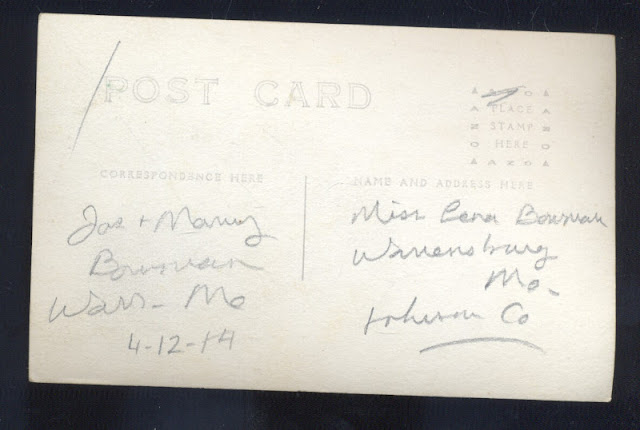 POST CARD
AZO
PLACE
STAMP
HERE
AZO
CORRESPONDENCE HERE
NAME AND ADDRESS HERE
Jas + Mary
Bowman
Warr- Mo
4-12-14
Miss Lena Bowman
Warrensburg
Mo-
Johnson Co